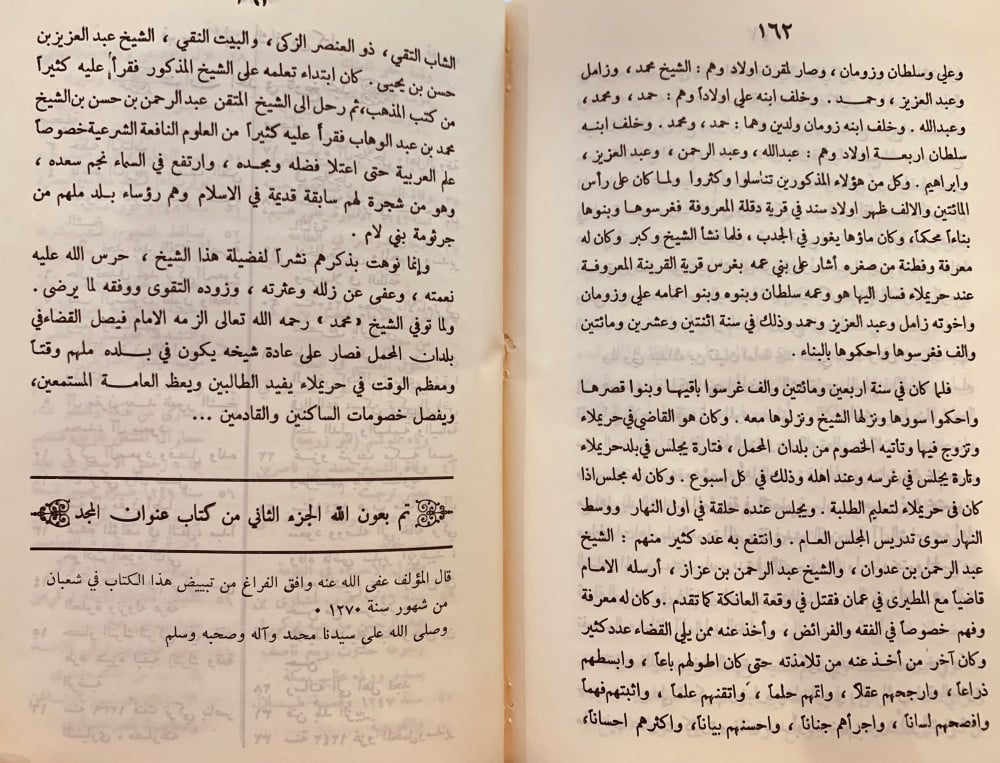 ١٦٢
وعلي وسلطان وزومان ، وصار لمقرن اولاد وهم : الشيخ محمد ، وزامل
وعبد العزيز ، وحمد . وخلف ابنه علي اولاداً وهم : حمد ، ومحمد ،
وعبدالله . وخلف ابنه زومان ولدين وهما : حمد ، ومحمد . وخلف ابنه
سلطان اربعة اولاد وهم : عبدالله ، وعبد الرحمن ، وعبد العزيز ،
وابراهيم . وكل من هؤلاء المذكورين تناسلوا وكثروا ولما كان على رأس
المائتين والالف ظهر اولاد سند في قرية دقلة المعروفة فغرسوها وبنوها
بناءاً محكماً ، وكان ماؤها يغور في الجدب ، فلما نشأ الشيخ وكبر وكان له
معرفة وفطنة من صغره أشار على بني عمه بغرس قرية القرينة المعروفة
عند حريملاء فسار اليها هو وعمه سلطان وبنوه وبنو اعمامه علي وزومان
واخوته زامل وعبد العزيز وحمد وذلك في سنة اثنتين وعشرين ومائتين
والف فغرسوها واحكوها بالبناء .
فلما كان في سنة اربعين ومائتين والف غرسوا باقيها وبنوا قصرها
واحكموا سورها ونزلها الشيخ ونزلوها معه . وكان هو القاضي في حريملاء
وتزوج فيها وتأتيه الخصوم من بلدان المحمل ، فتارة يجلس في بلد حريملاء
وتارة يجلس في غرسه وعند اهله وذلك في كل اسبوع . وكان له مجلس اذا
كان في حريملاء لتعليم الطلبة . ويجلس عنده حلقة في اول النهار ووسط
النهار سوى تدريس المجلس العام . وانتفع به عدد كثير منهم : الشيخ
عبد الرحمن بن عدوان ، والشيخ عبد الرحمن بن عزاز ، أرسله الامام
قاضياً مع المطيرى في عمان فقتل في وقعة العانكة كما تقدم . وكان له معرفة
وفهم خصوصاً في الفقه والفرائض ، وأخذ عنه ممن يلي القضاء عدد كثير
وكان آخر من أخذ عنه من تلامذته حتى كان اطولهم باعاً ، وابسطهم
ذراعاً ، وارجحهم عقلاً ، واتمهم حلماً ، واتقنهم علماً ، واثبتهم فهماً
وافصحهم لساناً ، واجرأهم جناناً ، واحسنهم بياناً ، واكثرهم احساناً،
الشاب التقي ، ذو العنصر الزكى ، والبيت النقي ، الشيخ عبد العزيز بن
حسن بن يحيى . كان ابتداء تعلمه على الشيخ المذكور فقرأ عليه كثيراً
من كتب المذهب، ثم رحل الى الشيخ المتقن عبد الرحمن بن حسن بن الشيخ
محمد بن عبد الوهاب فقرأ عليه كثيراً من العلوم النافعة الشرعية خصوصاً
علم العربية حتى اعتلا فضله ومجده ، وارتفع في السماء نجم سعده ،
وهو من شجرة لهم سابقة قديمة في الاسلام وهم رؤساء بلد ملهم من
جرثومة بني لام .
وإنما نوهت بذكرهم نشراً لفضيلة هذا الشيخ ، حرس الله عليه
نعمته ، وعفى عن زلله وعثرته ، وزوده التقوى ووفقه لما يرضى .
ولما توفي الشيخ «محمد» رحمه الله تعالى الزمه الامام فيصل القضاء في
بلدان المحمل فصار على عادة شيخه يكون في بلده ملهم وقتاً
ومعظم الوقت في حريملاء يفيد الطالبين ويعظ العامة المستمعين،
ويفصل خصومات الساكنين والقادمين ...
تم بعون الله الجزء الثاني من كتاب عنوان المجد
قال المؤلف عفى الله عنه وافق الفراغ من تبييض هذا الكتاب في شعبان
من شهور سنة ١٢٧٠ .
وصلى الله على سيدنا محمد وآله وصحبه وسلم